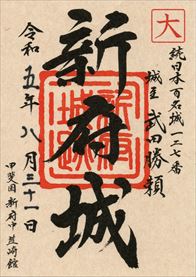 大
続日本百名城一二七番
城主 武田勝頼
新府城
新府城跡
令和五年八月三十一日
甲斐国 新府中韮崎館